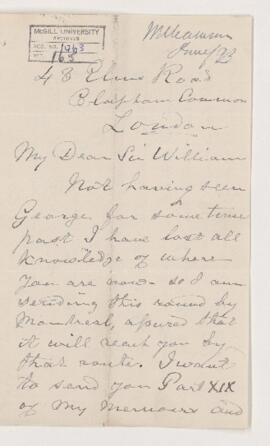 McGILL UNIVERSITY
ARCHIVES
ACC. NO. 1963
REF. 163
June/93
48 Elms Road
Clapham Common
London
My Dear Sir William
Not having seen
George for some time
past I have lost all
knowledge of where
you are now - so I am
sending this round by
Montreal, assured that
it will reach you by
that route. I want
to send you Part XIX
of my Memoirs and